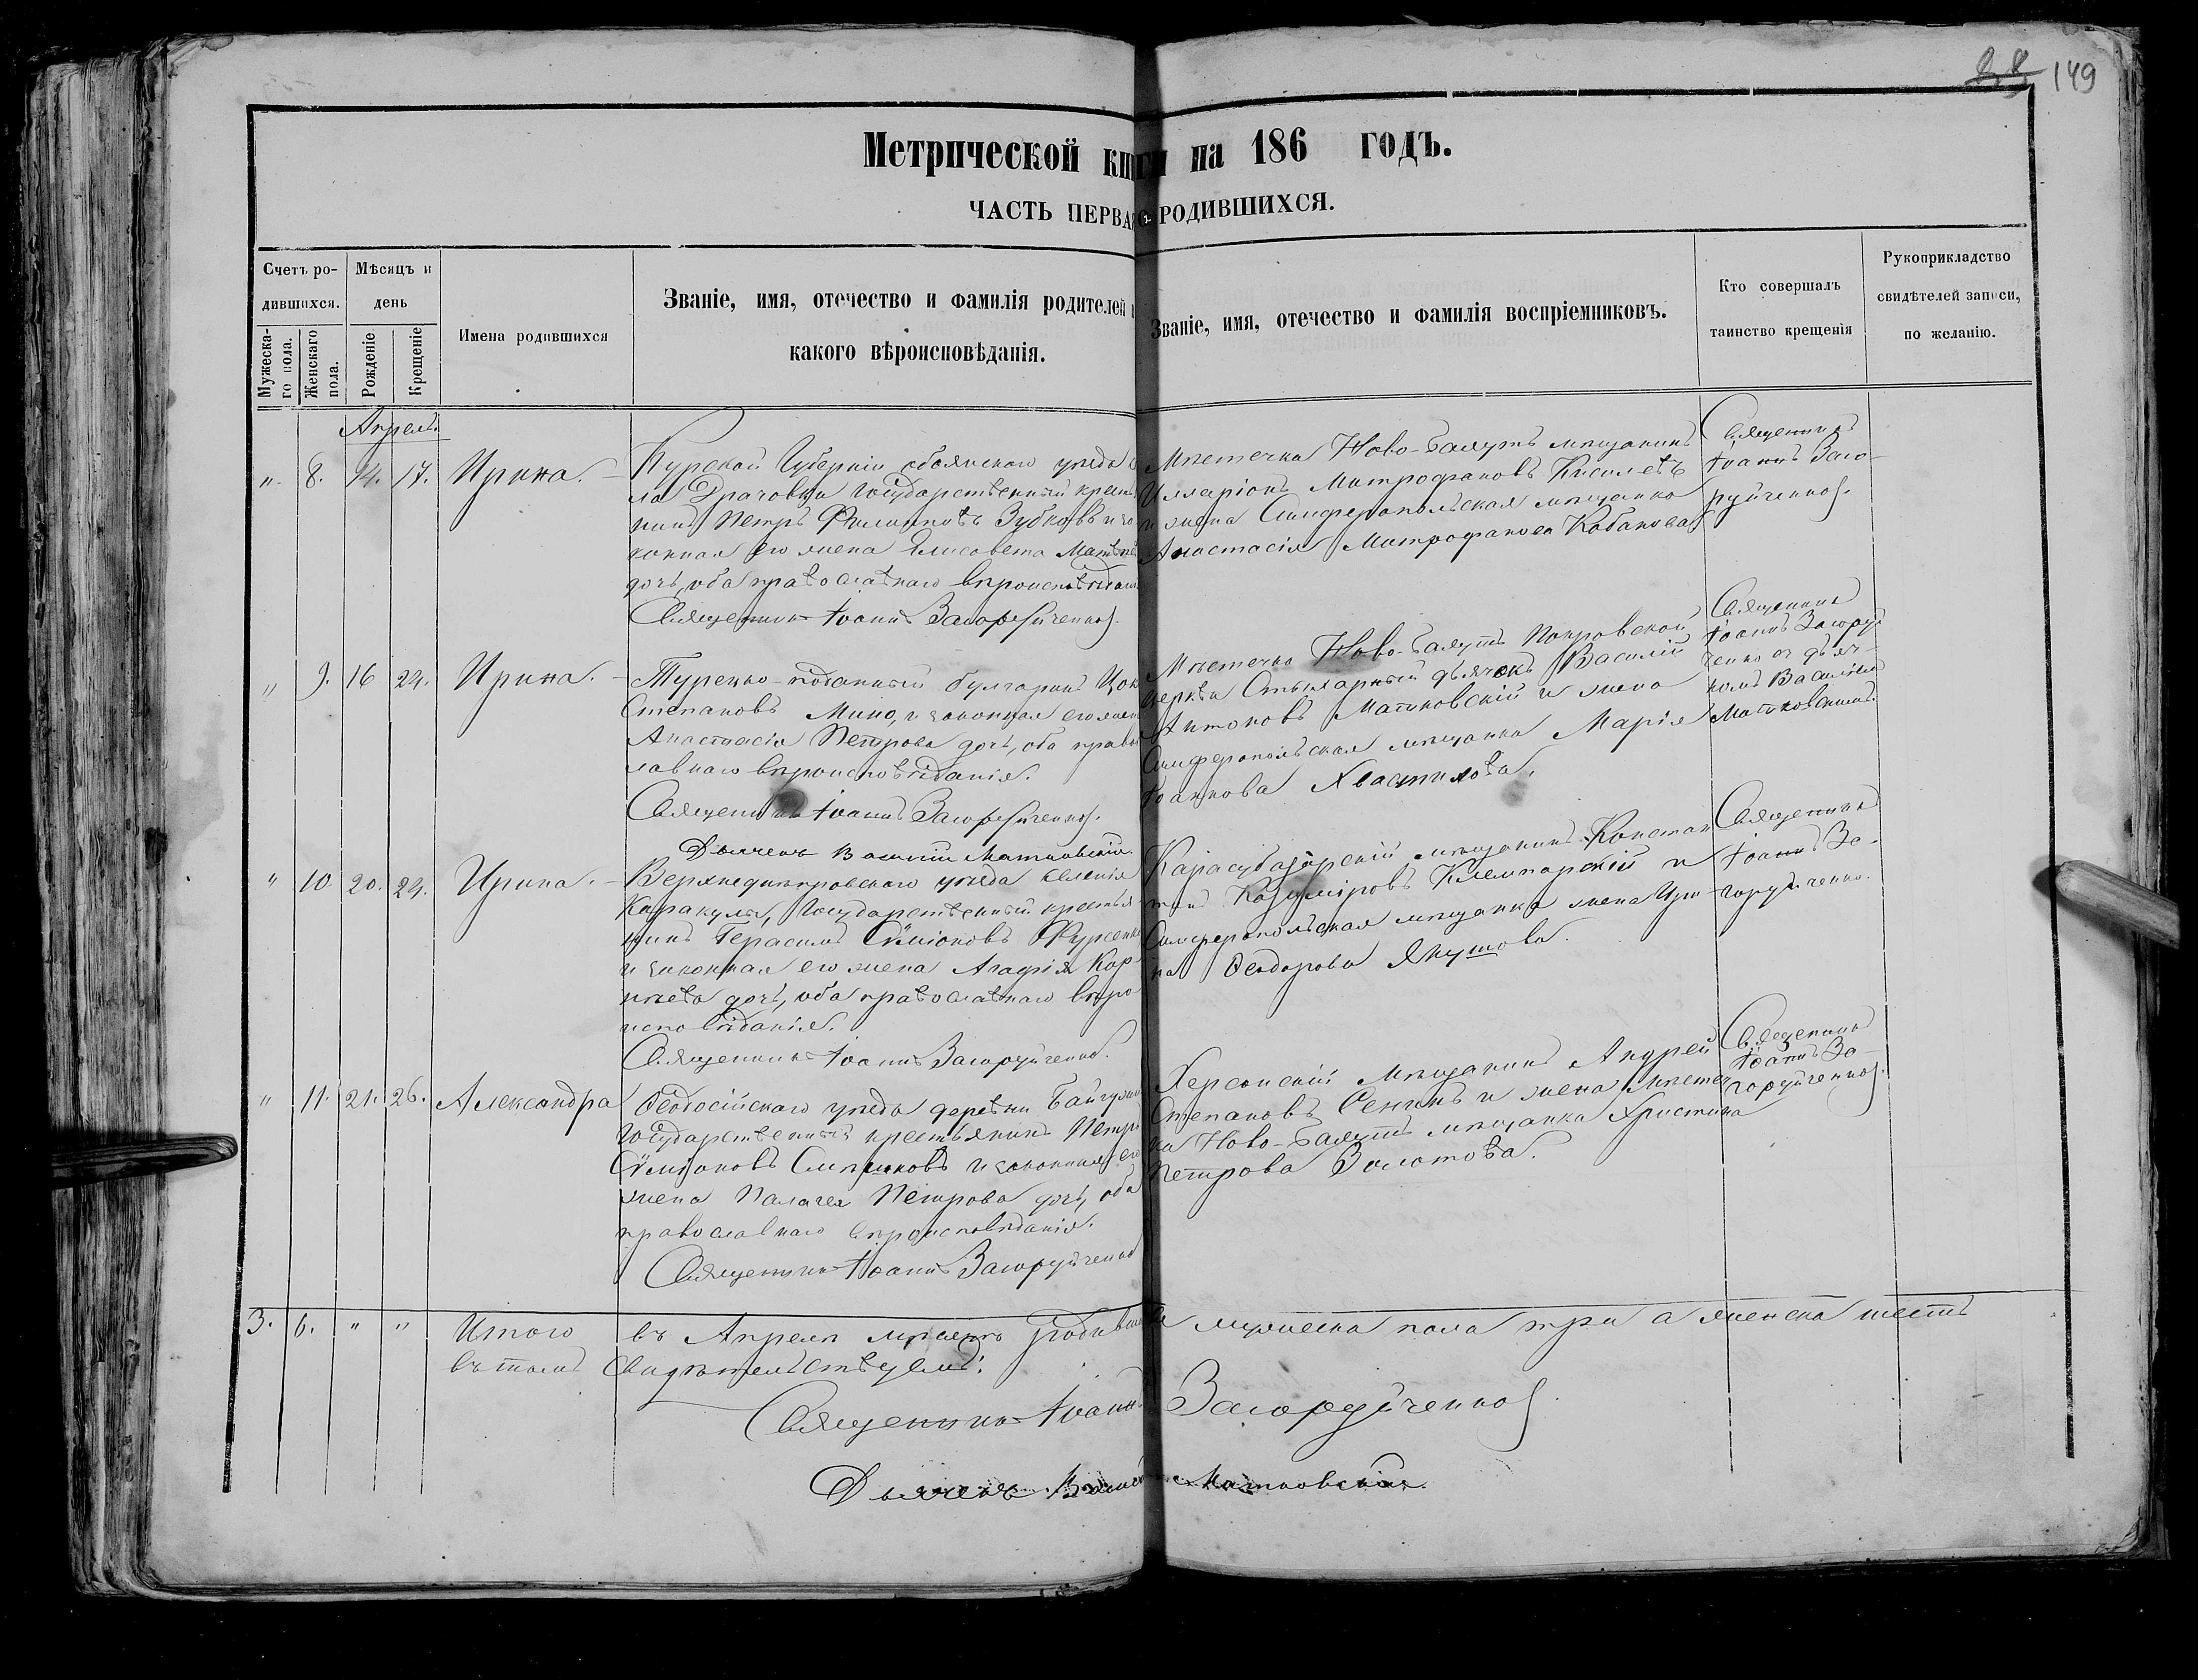 88 149
Метрической книги на 186 годъ.
ЧАСТЬ ПЕРВАЯ О РОДИВШИХСЯ.
Счетъ ро-
дившихся.
Мужеска-
го пола.
Женскаго
пола.
Мѣсяцъ и
день
Рожденіе
Крещеніе
Имена родившихся
Званіе, имя, отечество и фамилія родителей и
какого вѣроисповѣданія.
Званіе, имя, отечество и фамилія воспріемниковъ.
Кто совершалъ
таинство крещенія
Рукоприкладство
свидѣтелей записи,
по желанію.
Апрель.
" 8. 14. 17. Ирина.
Курской Губерніи обоянского уезда
ла Драчовки государственный крест
нинъ Петръ Филиповъ Зубковъ и за
конная его жена Елисавета Матвѣе
дочь, оба православнаго вѣроисповѣдан
Священникъ Іоаннъ Загоруйченко.
Мѣстечка Ново-Балутъ мѣщанинъ
Илларіонъ Митрофановъ Киселевъ
и жена Симферопольская мѣщанка
Анастасія Митрофанова Кабанова
Священникъ
Іоаннъ Заго-
руйченко.
" 9. 16 24. Ирина.
Турецко-подданный булгаринъ
Степановъ Мино, и законная его жен
Анастасія Петрова дочь, оба право
славнаго вѣроисповѣданія.
Священникъ Іоаннъ Загоруйченко.
Дьячекъ Василій Матковскій.
Мѣстечка Ново-Балутъ Покровской
церкви Стихарный дьячокъ Василій
Антоновъ Матковскій и жена
Симферопольская мѣщанка Марія
Іоаннова Хвастилова.
Священникъ
Іоаннъ Загоруй
ченко съ дьяч-
комъ Василіемъ
Матковскимъ
" 10 20. 24. Ирина.
Верхнеднѣпровскаго уѣзда селенія
Каракулы, Государственный крестья
нинъ Герасимъ Симіоновъ Фурсенко
и законная его жена Агафія Кор
нѣева дочь, оба православнаго вѣро
исповѣданія.
Священникъ Іоаннъ Загоруйченко.
Карасубазарскій мѣщанинъ Констан
тинъ Казиміровъ Клемпарскій и
Симферопольская мѣщанка жена Ири
на Феодорова Якушова.
Священникъ
Іоаннъ За-
горуйченко.
" 11. 21. 26. Александра
Феодосійскаго уѣзда деревни
Государственный крестьянинъ Петръ
Симіоновъ и законная его
жена Палагея Петрова дочь, оба
православнаго вѣроисповѣданія.
Священникъ Іоаннъ Загоруйченко
Херсонскій Мѣщанинъ Андрей
Степановъ Сенинъ и жена Мѣстеч
ка Ново-Балутъ мѣщанка Христина
Петрова Золотова.
Священникъ
Іоаннъ За-
горуйченко.
3. 6. " " Итого въ Апрелѣ мѣсяцѣ родивш мужеска пола три а женска шесть
въ томъ свидѣтельствуемъ:
Священникъ Іоаннъ Загоруйченко
Дьячекъ Василій Матковскій.